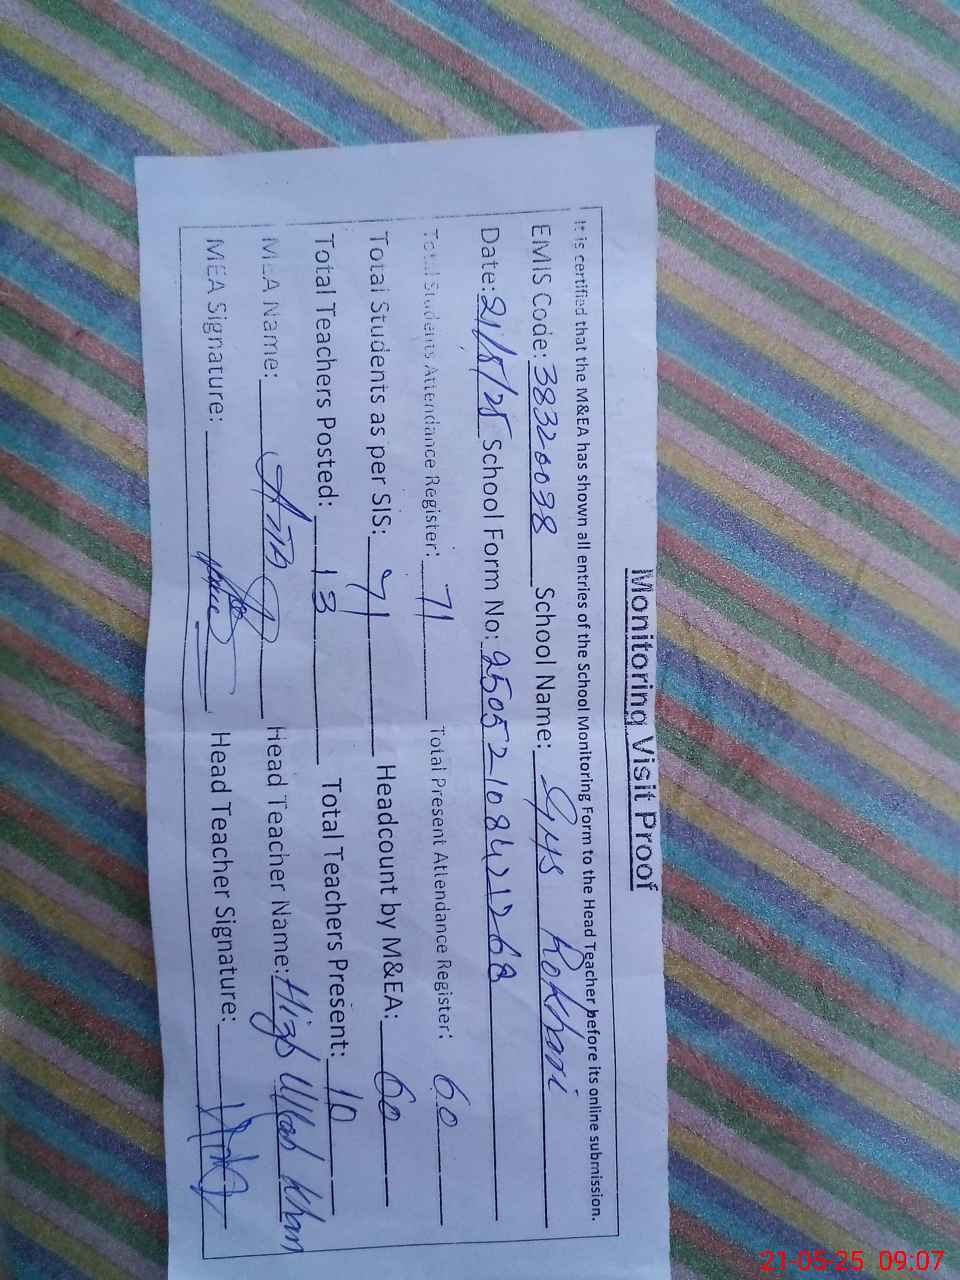 Monitoring Visit Proof
It is certified that the M&EA has shown all entries of the School Monitoring Form to the Head Teacher before its online submission.
EMIS Code: 38320038 School Name: GHS Rokhari
Date: 21/5/25 School Form No: 25052108421268
Total Students Attendance Register: 71 Total Present Attendance Register: 60
Total Students as per SIS: 71 Headcount by M&EA: 60
Total Teachers Posted: 13 Total Teachers Present: 10
MEA Name: Head Teacher Name: Hizb Ullah Khan
MEA Signature: Head Teacher Signature:
21-05-25 09:07